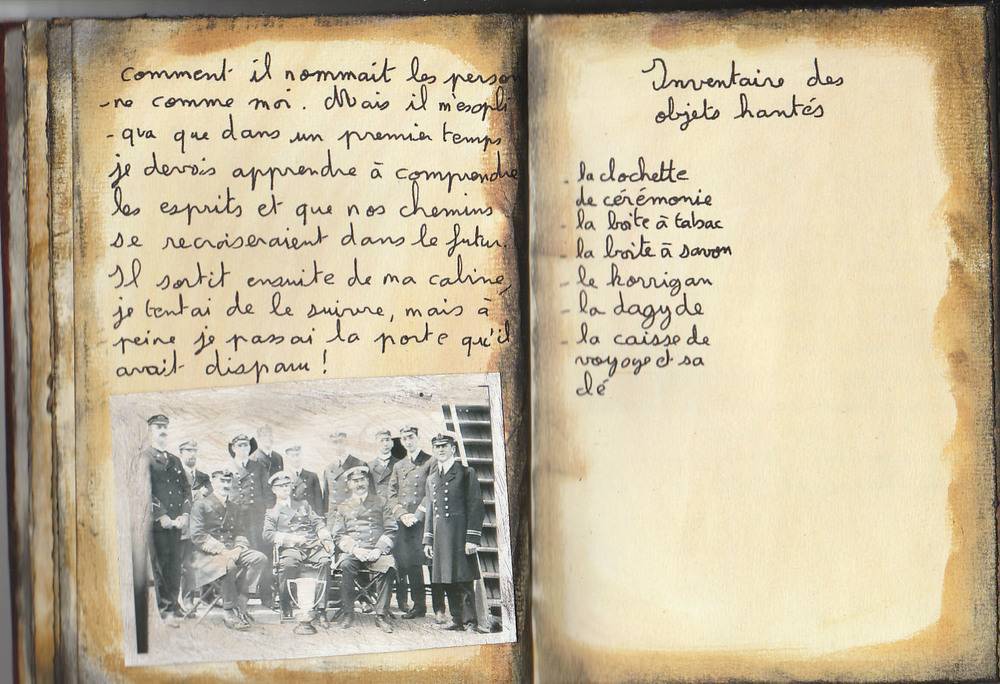 comment il nommait les person
-ne comme moi. Mais il m'expli
-qua que dans un premier temps
je devais apprendre à comprendre
les esprits et que nos chemins
se recroiseraient dans le futur.
Il sortit ensuite de ma cabine,
je tentai de le suivre, mais à
peine je passai la porte qu'il
avait disparu !
Inventaire des
objets hantés
- la clochette
de cérémonie
- la boîte à tabac
- la boîte à savon
- le korrigan
- la dagyde
- la caisse de
voyage et sa
clé